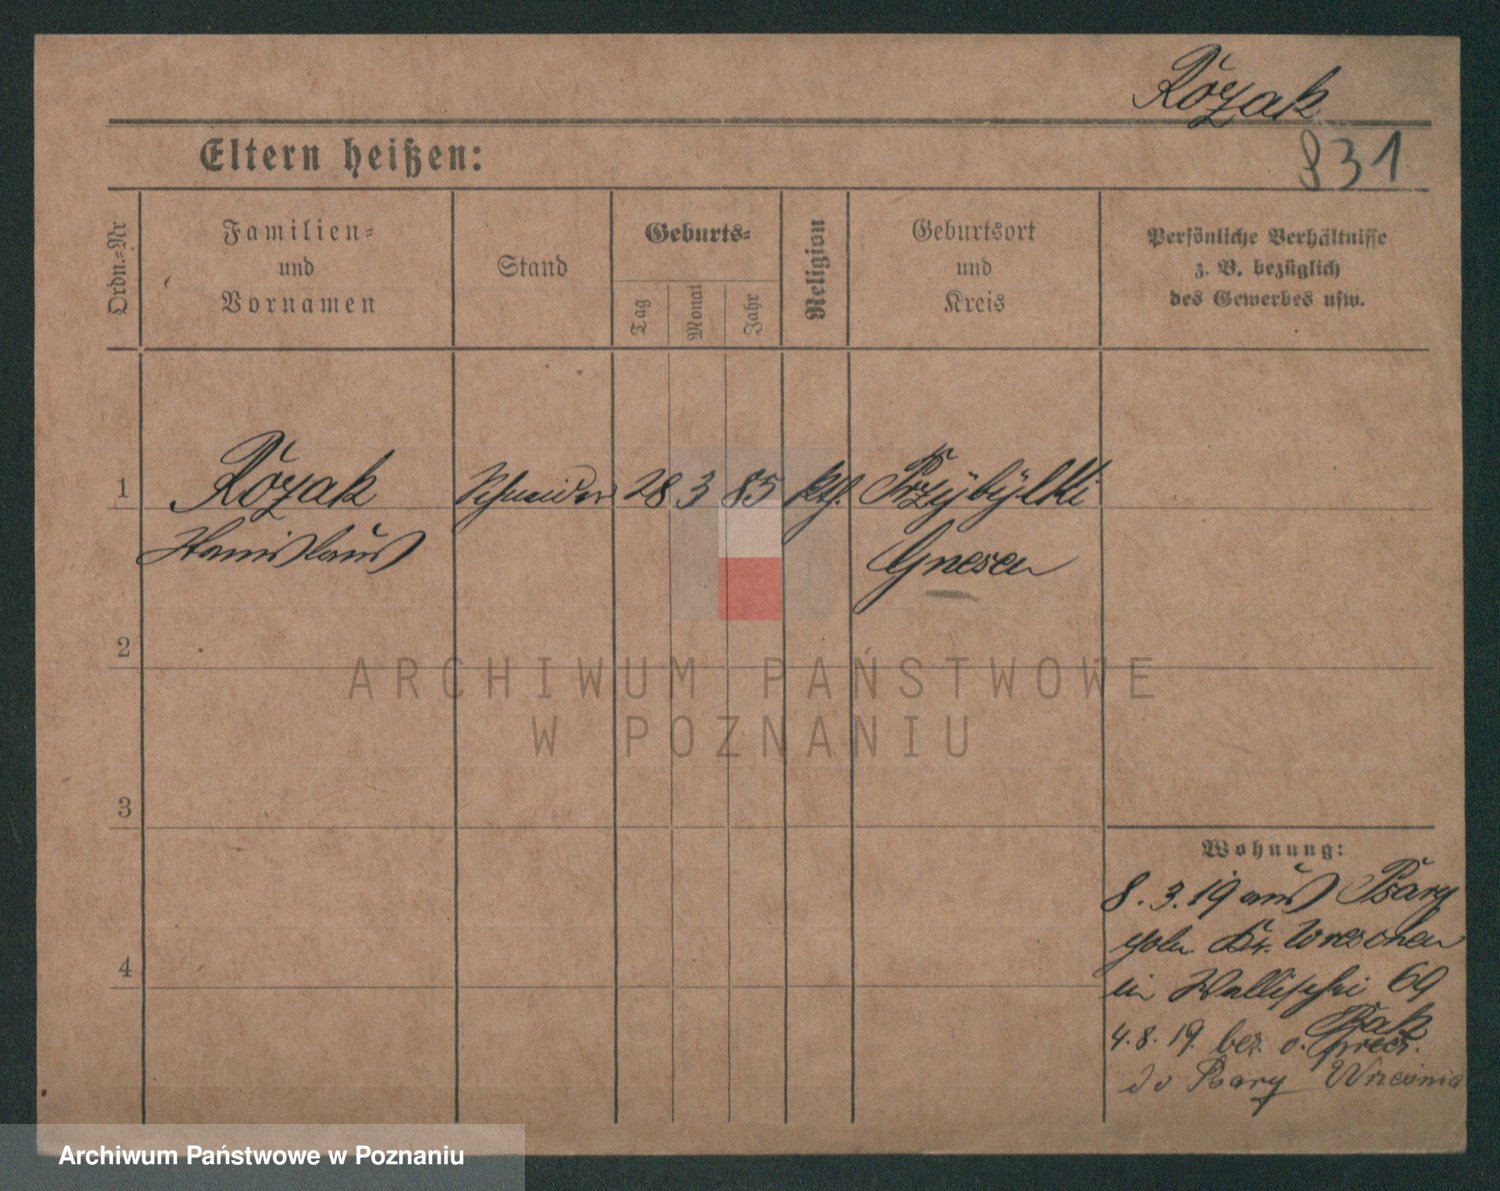 Rózak
831
Eltern heißen:
Ordn.=Nr
Familien=
und
Vornamen
Stand
Geburts=
Tag
Monat
Jahr
Religion
Geburtsort
und
Kreis
Persönliche Verhältnisse
z. B. bezüglich
des Gewerbes usw.
1 Rózak Schneider 28 3 85 kth. Przybylki
Stanislaus Gnesen
2
3
4
Wohnung:
8.3.19 aus Psary
poln. Kr. Wreschen
in Wallischei 69
4.8.19. bez. o.
do Psary Września
ARCHIWUM PAŃSTWOWE
W POZNANIU
Archiwum Państwowe w Poznaniu